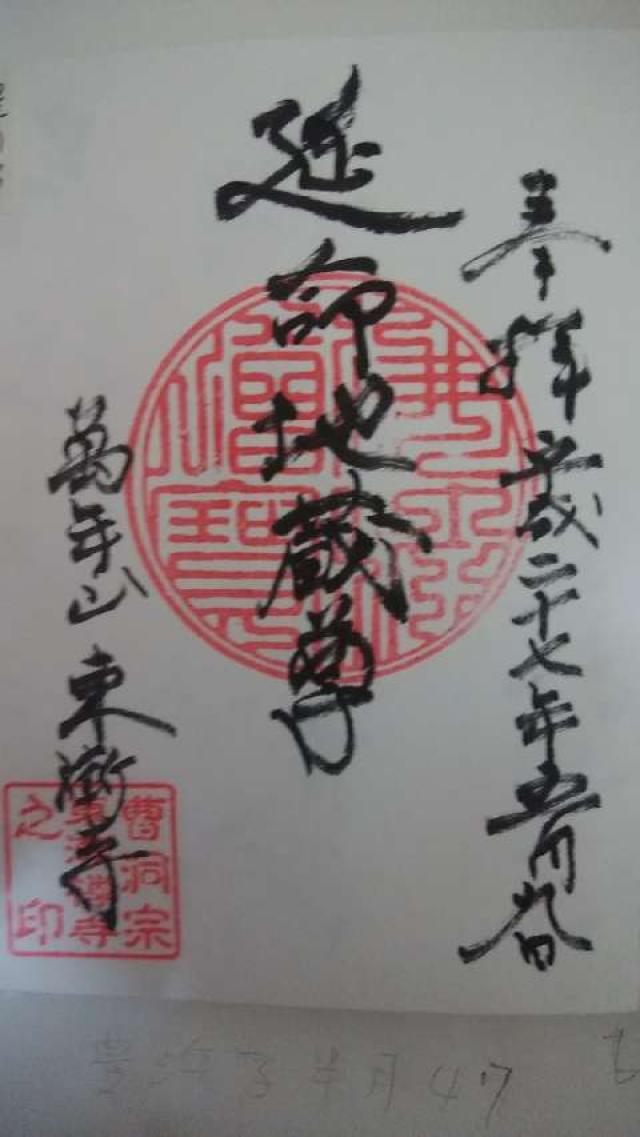 奉拝 平成二十七年五月九日
延命地蔵尊
萬年山 東漸寺
佛法僧寶
曹洞宗
東漸禅寺
之印